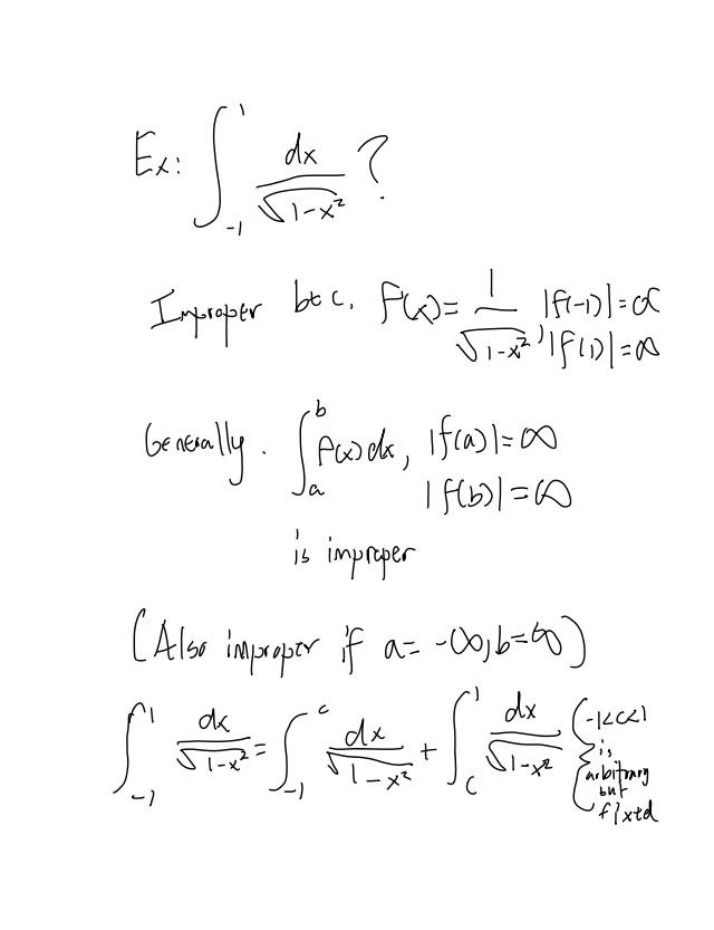 Ex: ∫_{-1}^{1} dx/√(1-x²) ?
Improper b/c. f(x) = 1/√(1-x²), |f(-1)| = ∞
|f(1)| = ∞
Generally. ∫_a^b f(x) dx, |f(a)| = ∞
|f(b)| = ∞
is improper
(Also improper if a = -∞, b = ∞)
∫_{-1}^{1} dx/√(1-x²) = ∫_{-1}^{c} dx/√(1-x²) + ∫_c^1 dx/√(1-x²) { -1<c<1
is
arbitrary
but
fixed